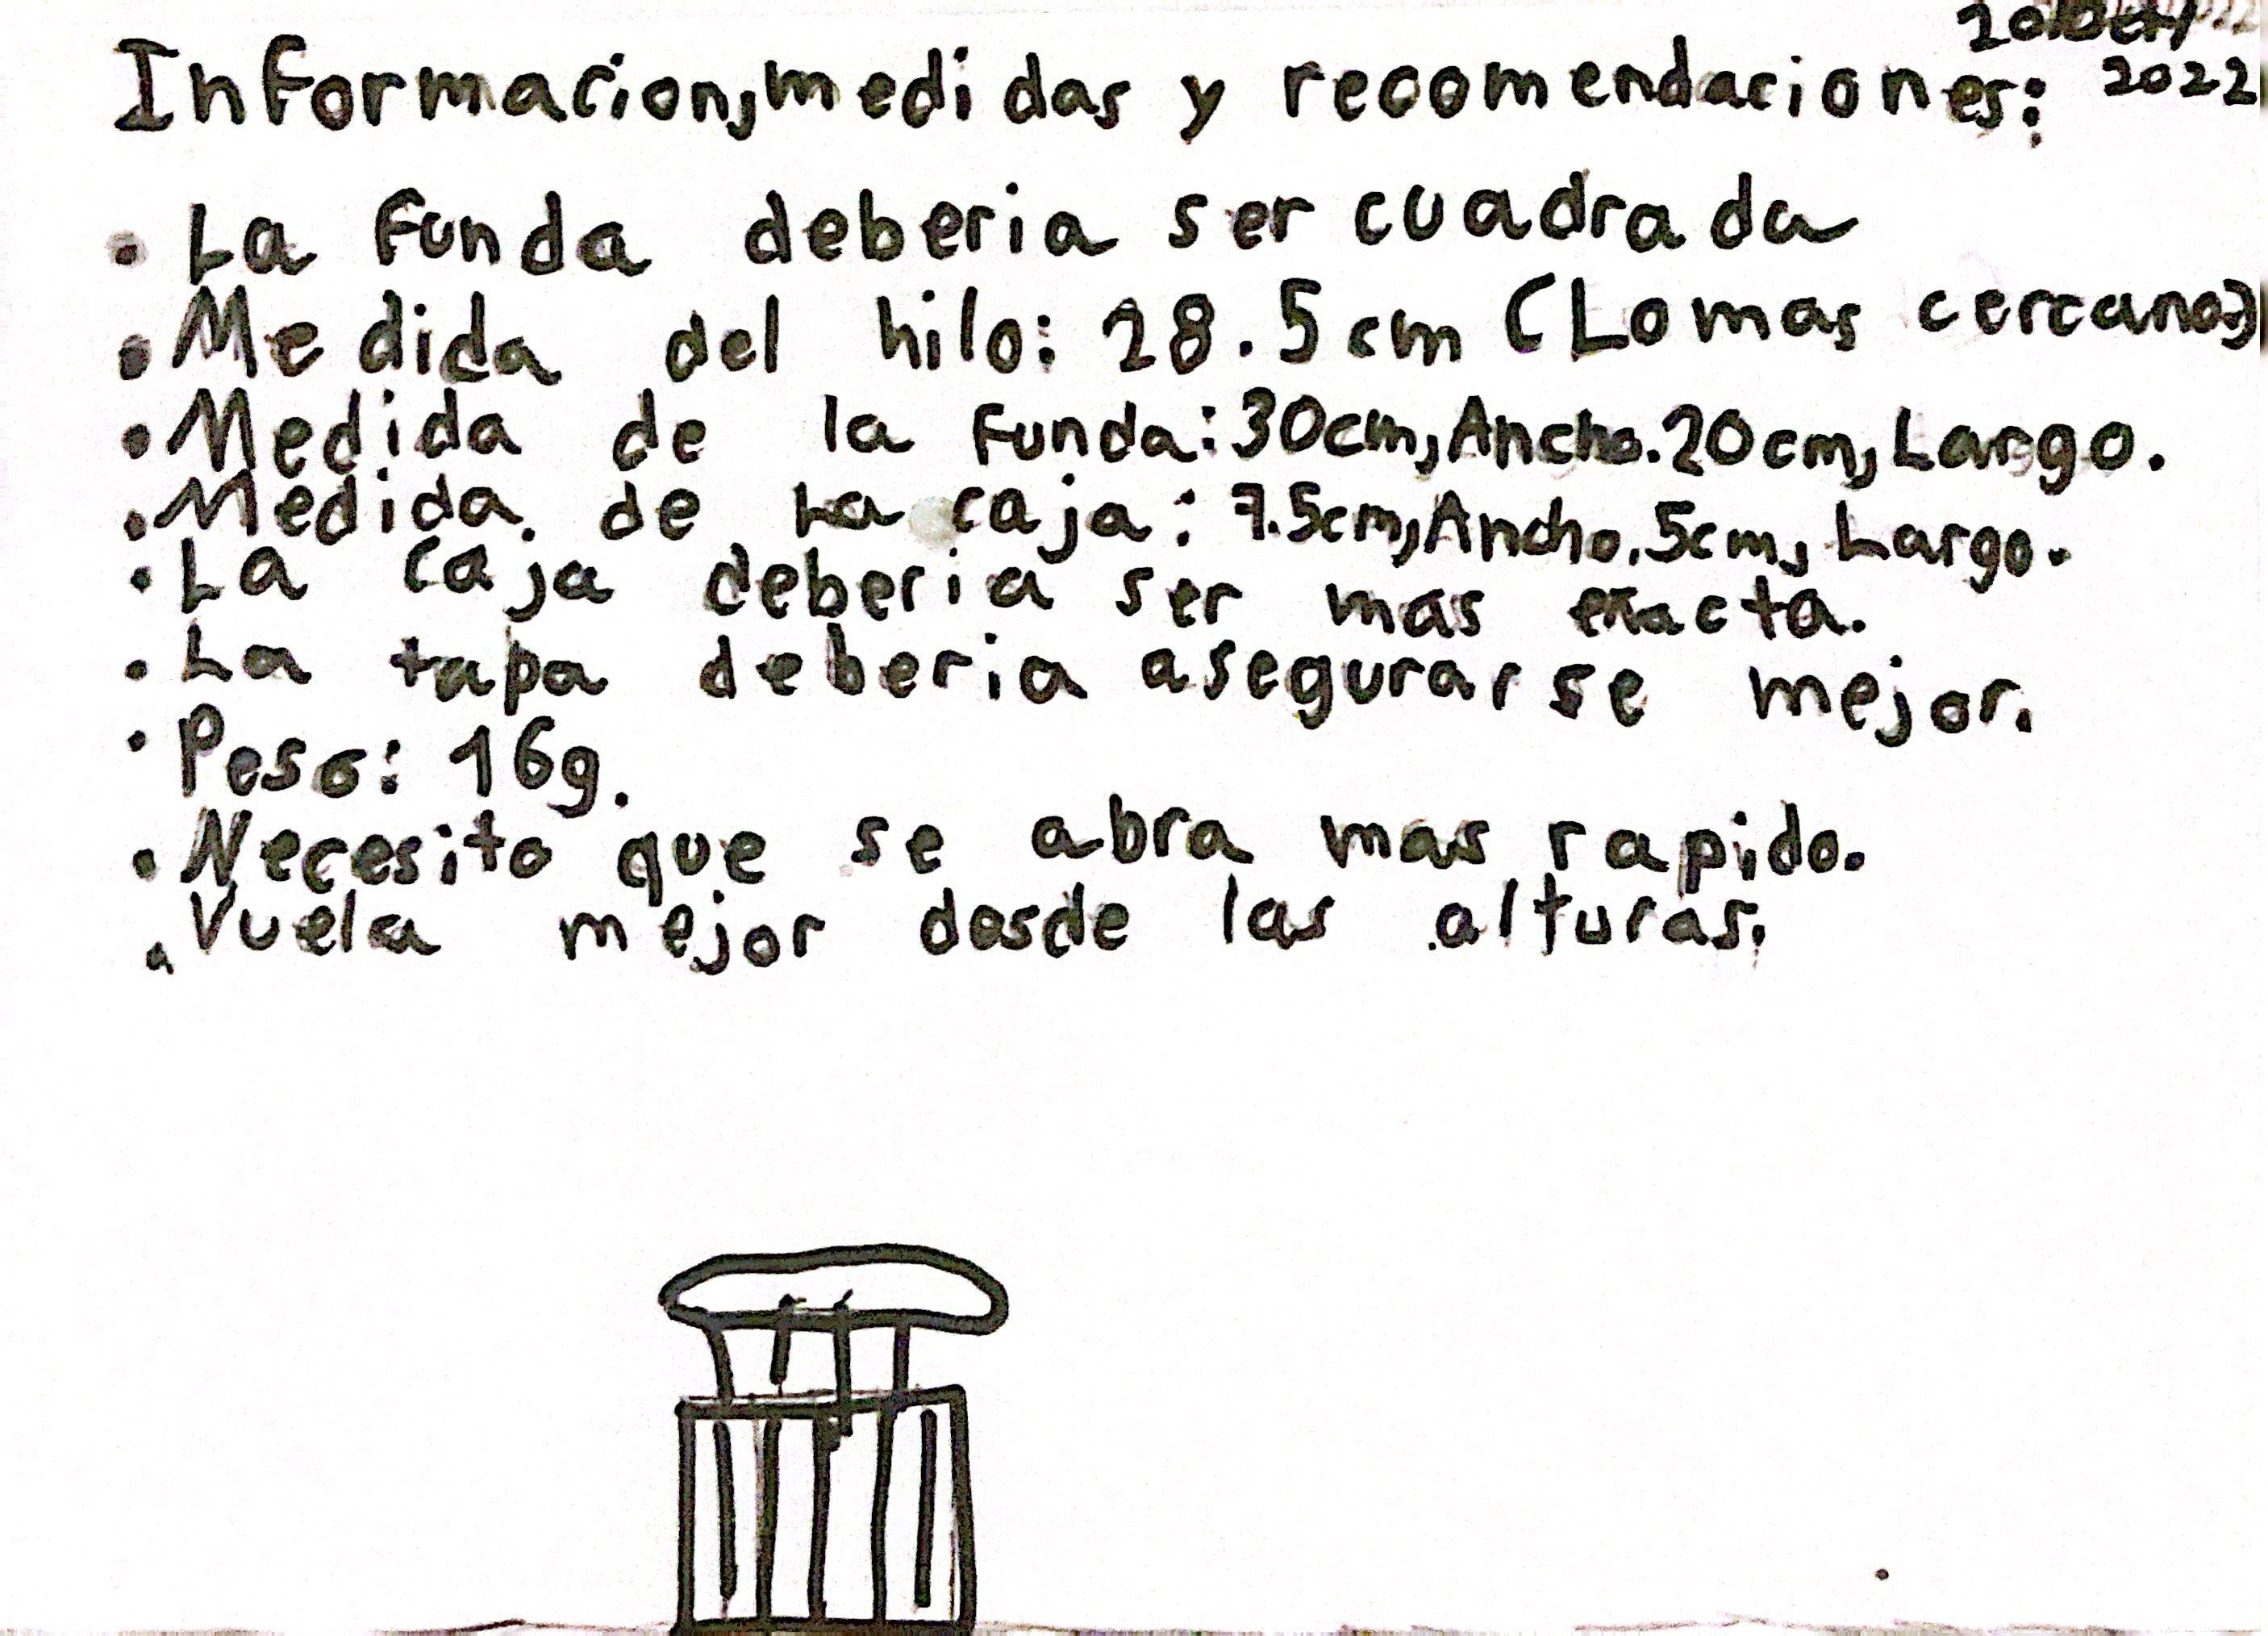 Informacion, medidas y recomendaciones: 2022
• La funda deberia ser cuadrada
• Medida del hilo: 28.5cm (Lo mas cercano)
• Medida de la funda: 30cm, Ancho. 20cm, Largo.
• Medida. de La caja: 7.5cm, Ancho. 5cm, Largo.
• La caja deberia ser mas exacta.
• La tapa deberia asegurarse mejor.
• Peso: 16g.
• Necesito que se abra mas rapido.
• Vuela mejor desde las alturas.